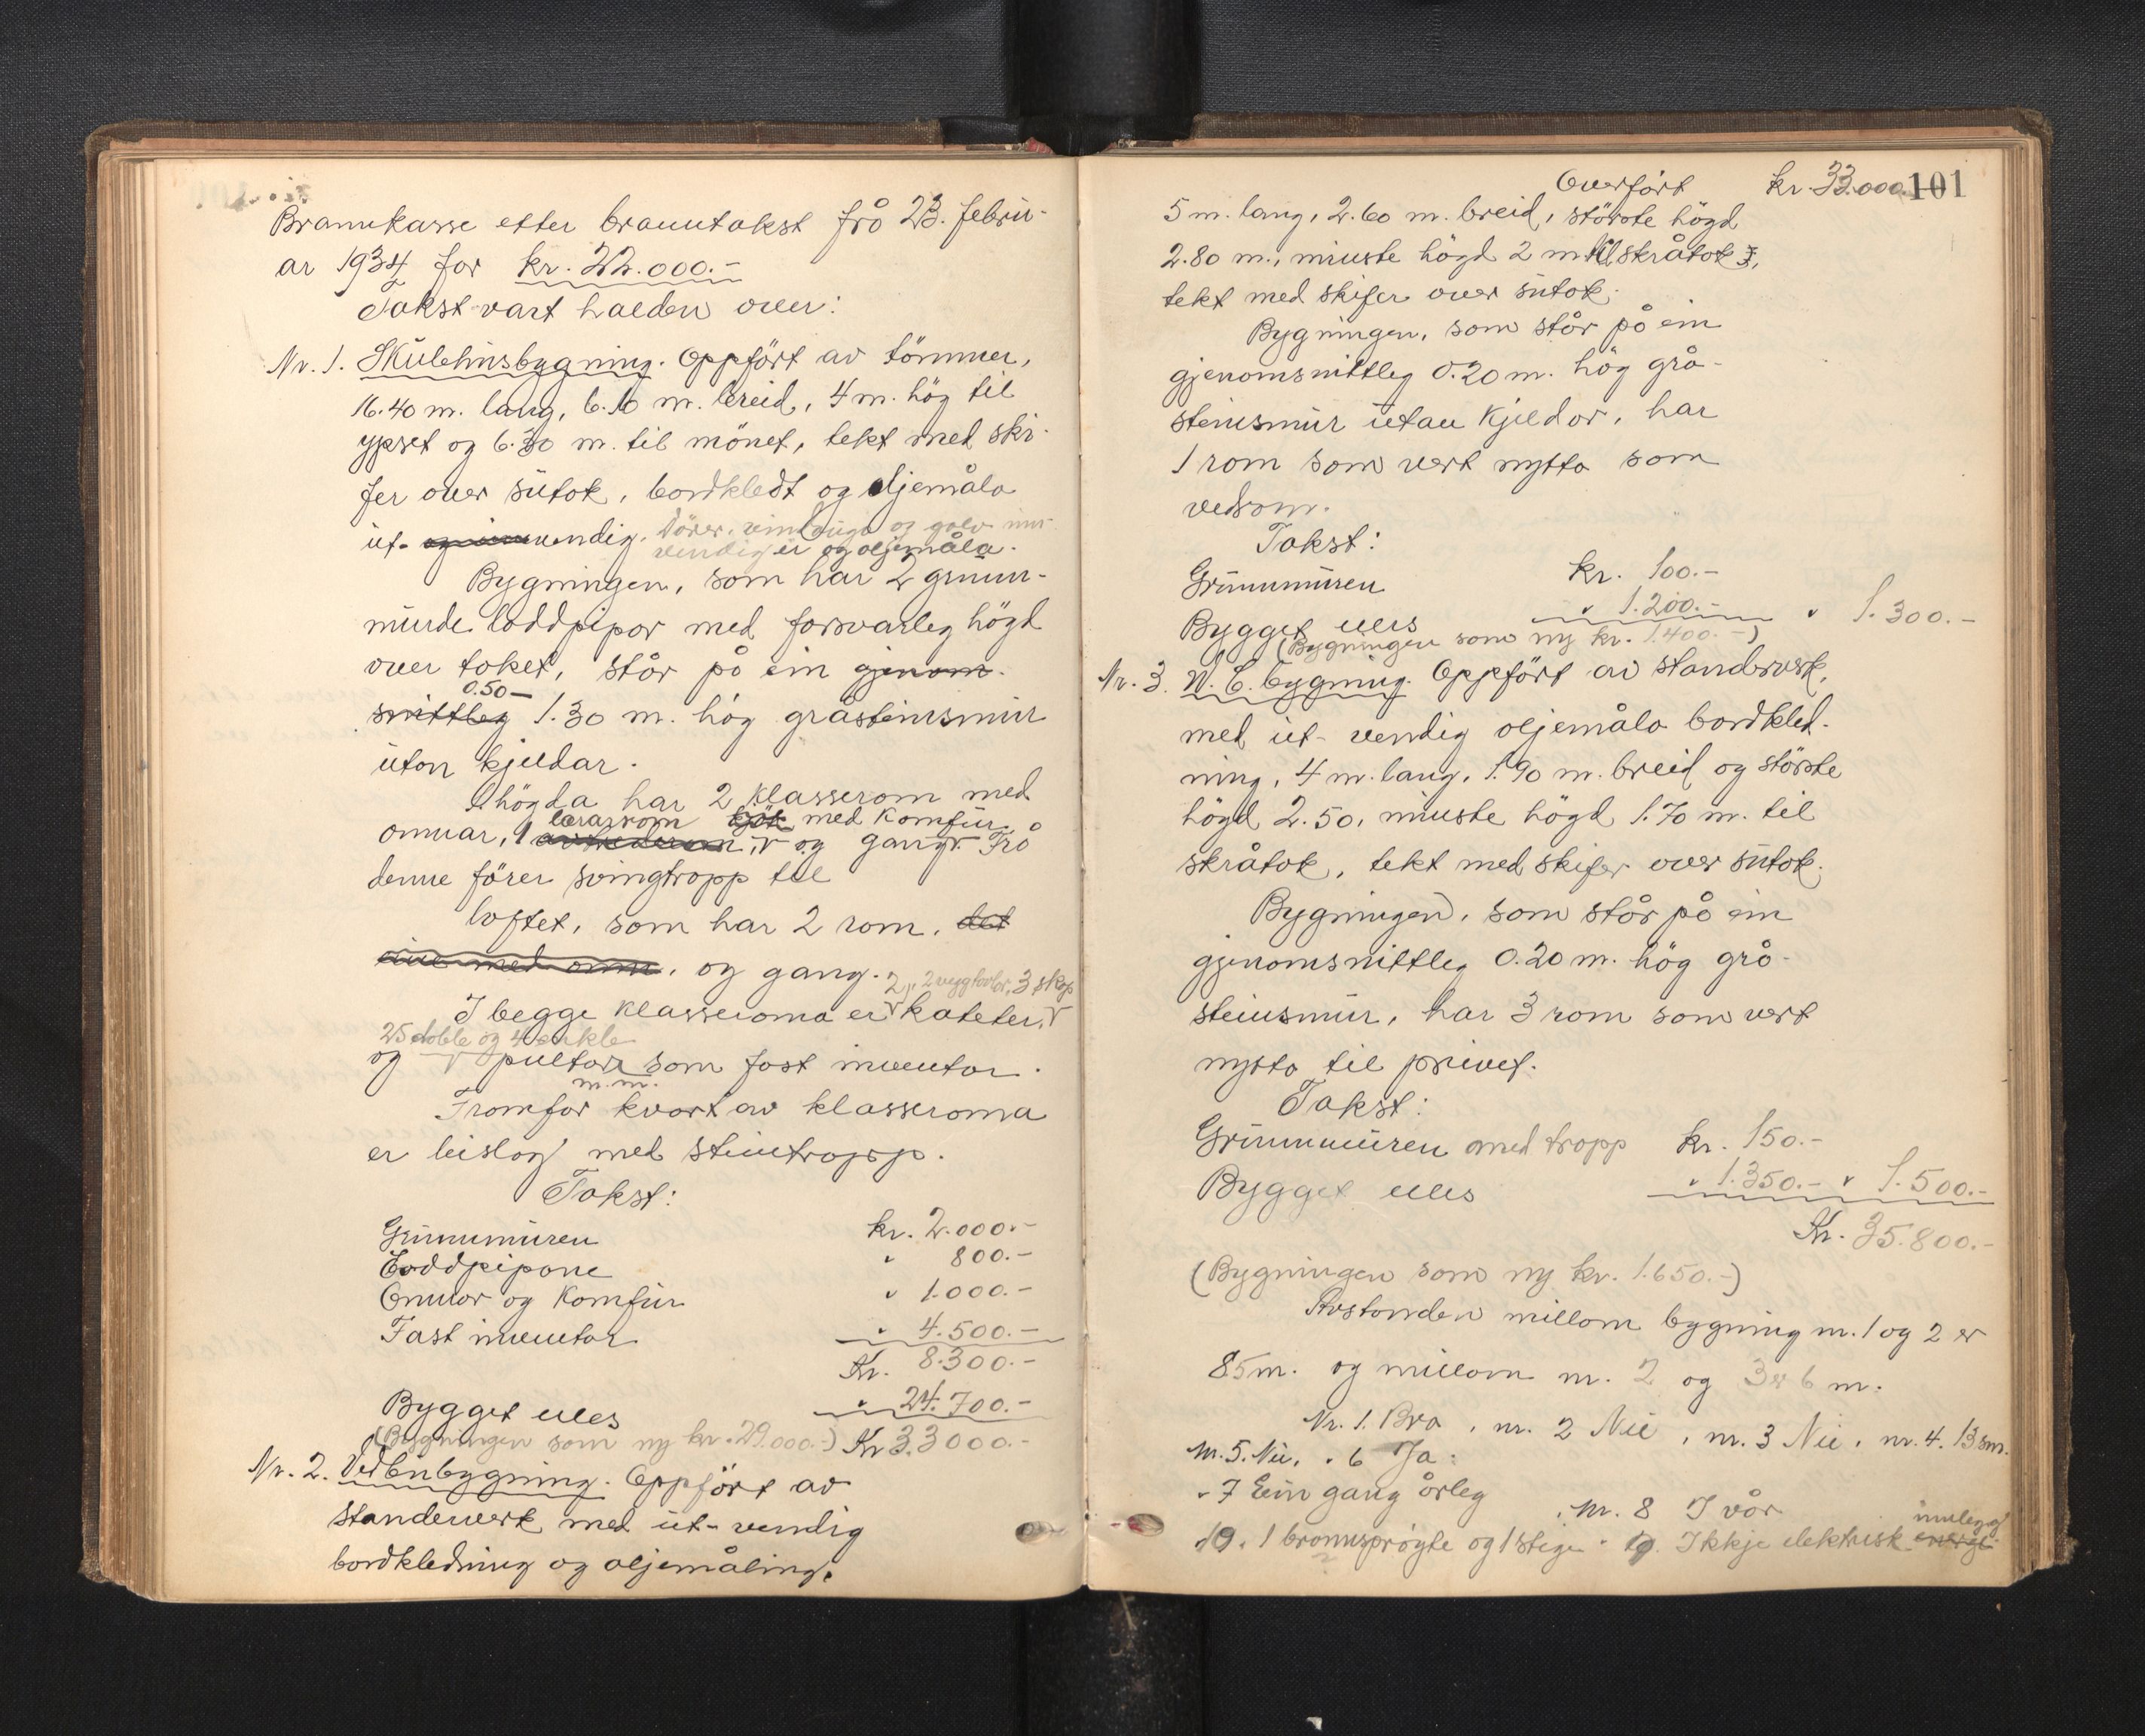 Brannkasse etter branntakst frå 23. febru-
ar 1934 for kr. 22.000.-
Takst vart halden over:
Nr. 1. Skulehusbygning. Oppfört av tömmer,
16.40 m. lang, 6.10 m. breid, 4 m. hög til
ypset og 6.30 m. til mönet, tekt med ski-
fer over sutak, bordkledt og oljemåla
ut- og innvendig. Dörer, vinduga og golv inn-
vendig er og oljemåla.
Bygningen, som har 2 grunn-
murde loddpipor med forsvarleg högd
over taket, står på ein gjenom-
0.50-
snittleg 1.30 m. hög gråsteinsmur
utan kjeldar.
1 högda har 2 klasserom med
lærarrom kjök med komfur
omnar, 1 og gang. Frå
denne förer svingtropp til
loftet, som har 2 rom, det
eine med omn, og gang.
2, 2 veggtavlor, 3 skap
I begge klasseroma er kateter,
25 doble og 4 enkle
og pultar som fast inventar.
m.m.
Framfor kvart av klasseroma
er beislag med steintropp.
Takst:
Grunnmuren kr. 2.000.-
Loddpipone " 800.-
Omnar og komfur " 1.000.-
Fast inventar " 4.500.-
Kr. 8.300.-
Bygget elles " 24.700.-
(Bygningen som ny kr. 29.000.-) Kr 33000.-
Nr. 2. Vedbubygning. Oppfört av
standerverk med ut- vendig
bordkledning og oljemåling,
Overfört kr. 33.000.- 101
5 m. lang, 2.60 m. breid, störste högd
2.80 m., minste högd 2 m. skråtak,
tekt med skifer over sutak.
Bygningen, som står på ein
gjenomsnittleg 0.20 m. hög grå-
steinsmur utan kjeldar, har
1 rom som vert nytta som
vedrom.
Takst:
Grunnmuren kr. 100.-
Bygget elles " 1.200.- " 1.300.-
(Bygningen som ny kr. 1.400.-)
Nr. 3. W.C. bygning. Oppfört av standerverk,
med ut- vendig oljemåla bordkled-
ning, 4 m. lang, 1.90 m. breid og störste
högd 2.50, minste högd 1.70 m. til
skråtak, tekt med skifer over sutak.
Bygningen, som står på ein
gjenomsnittleg 0.20 m. hög grå-
steinsmur, har 3 rom som vert
nytta til privet.
Takst:
Grunnmuren med tropp kr. 150.-
Bygget elles " 1.350.- " 1.500.-
Kr. 35.800.-
(Bygningen som ny kr. 1.650.-)
Avstanden millom bygning nr. 1 og 2 er
85 m. og millom nr. 2 og 3 er 6 m.
Nr. 1. Bra, nr. 2 Nei, nr. 3 Nei, nr. 4. 13 sm.
nr. 5. Nei, " 6 Ja.
" 7 Ein gang årleg, nr. 8 I vår
innlegg
10. 1 brannsprøyte og 1 stige. 9. Ikkje elektrisk energi